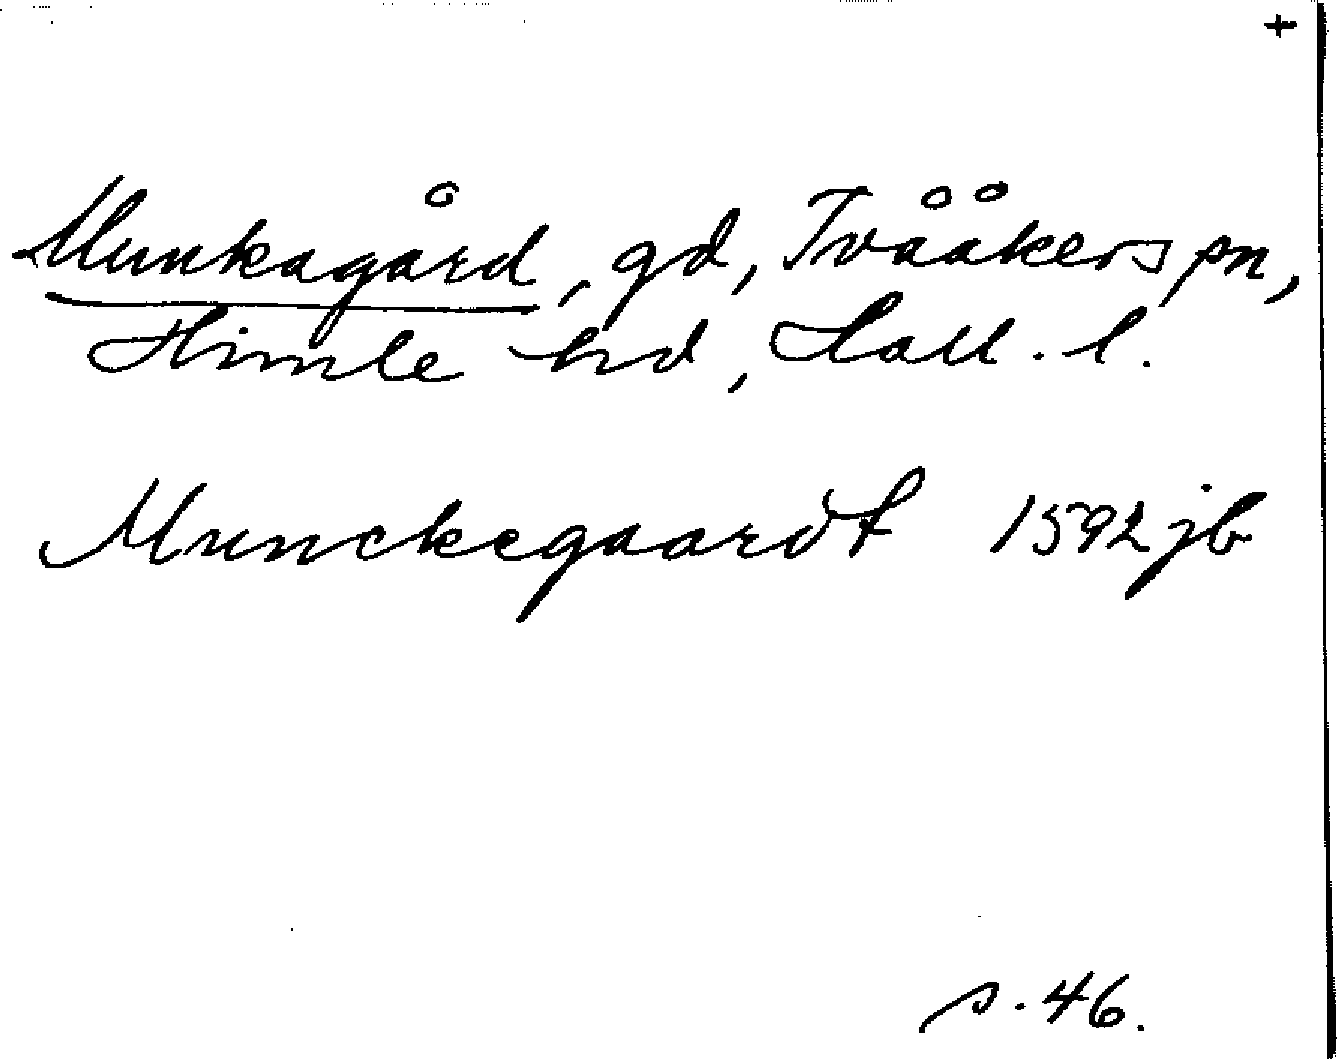 +
Munkagård, gd, Tvååkers sn,
Himle hd, Hall. l.
Munckegaardt 1592 jb
s. 46.